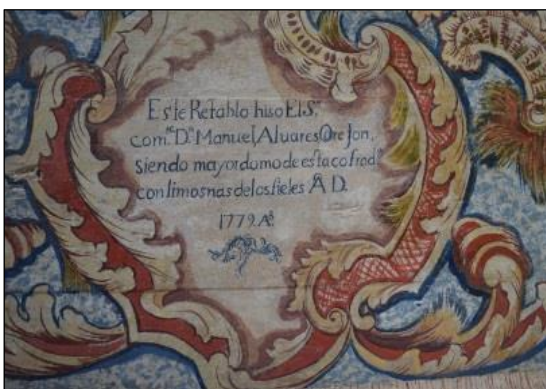 Este Retablo hiso El S.ʳ
com.ᵒ D.ⁿ Manuel Aluares Orejon,
siendo mayordomo de esta cofrad.ᵃ
con limosnas de los fieles A D.
1779 A.ˢ